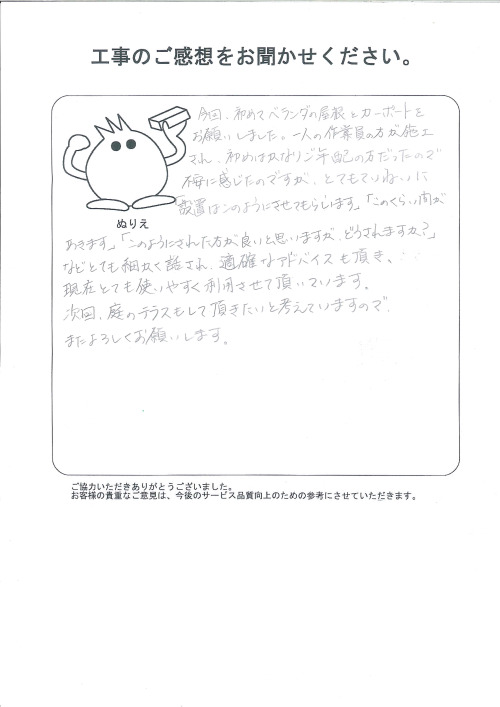 工事のご感想をお聞かせください。
今回、初めてベランダの屋根とカーポートを
お願いしました。一人の作業員の方が施工
され、初めはかなりご年配の方だったので
不安に感じたのですが、とてもていねいに
「設置はこのようにさせてもらいます」「このくらい内が
ぬりえ
あきます」「このようにされた方が良いと思いますが、どうされますか?」
などとても細かく話され、適確なアドバイスも頂き、
現在とても使いやすく利用させて頂いています。
次回、庭のテラスもして頂きたいと考えていますので、
またよろしくお願いします。
ご協力いただきありがとうございました。
お客様の貴重なご意見は、今後のサービス品質向上のための参考にさせていただきます。